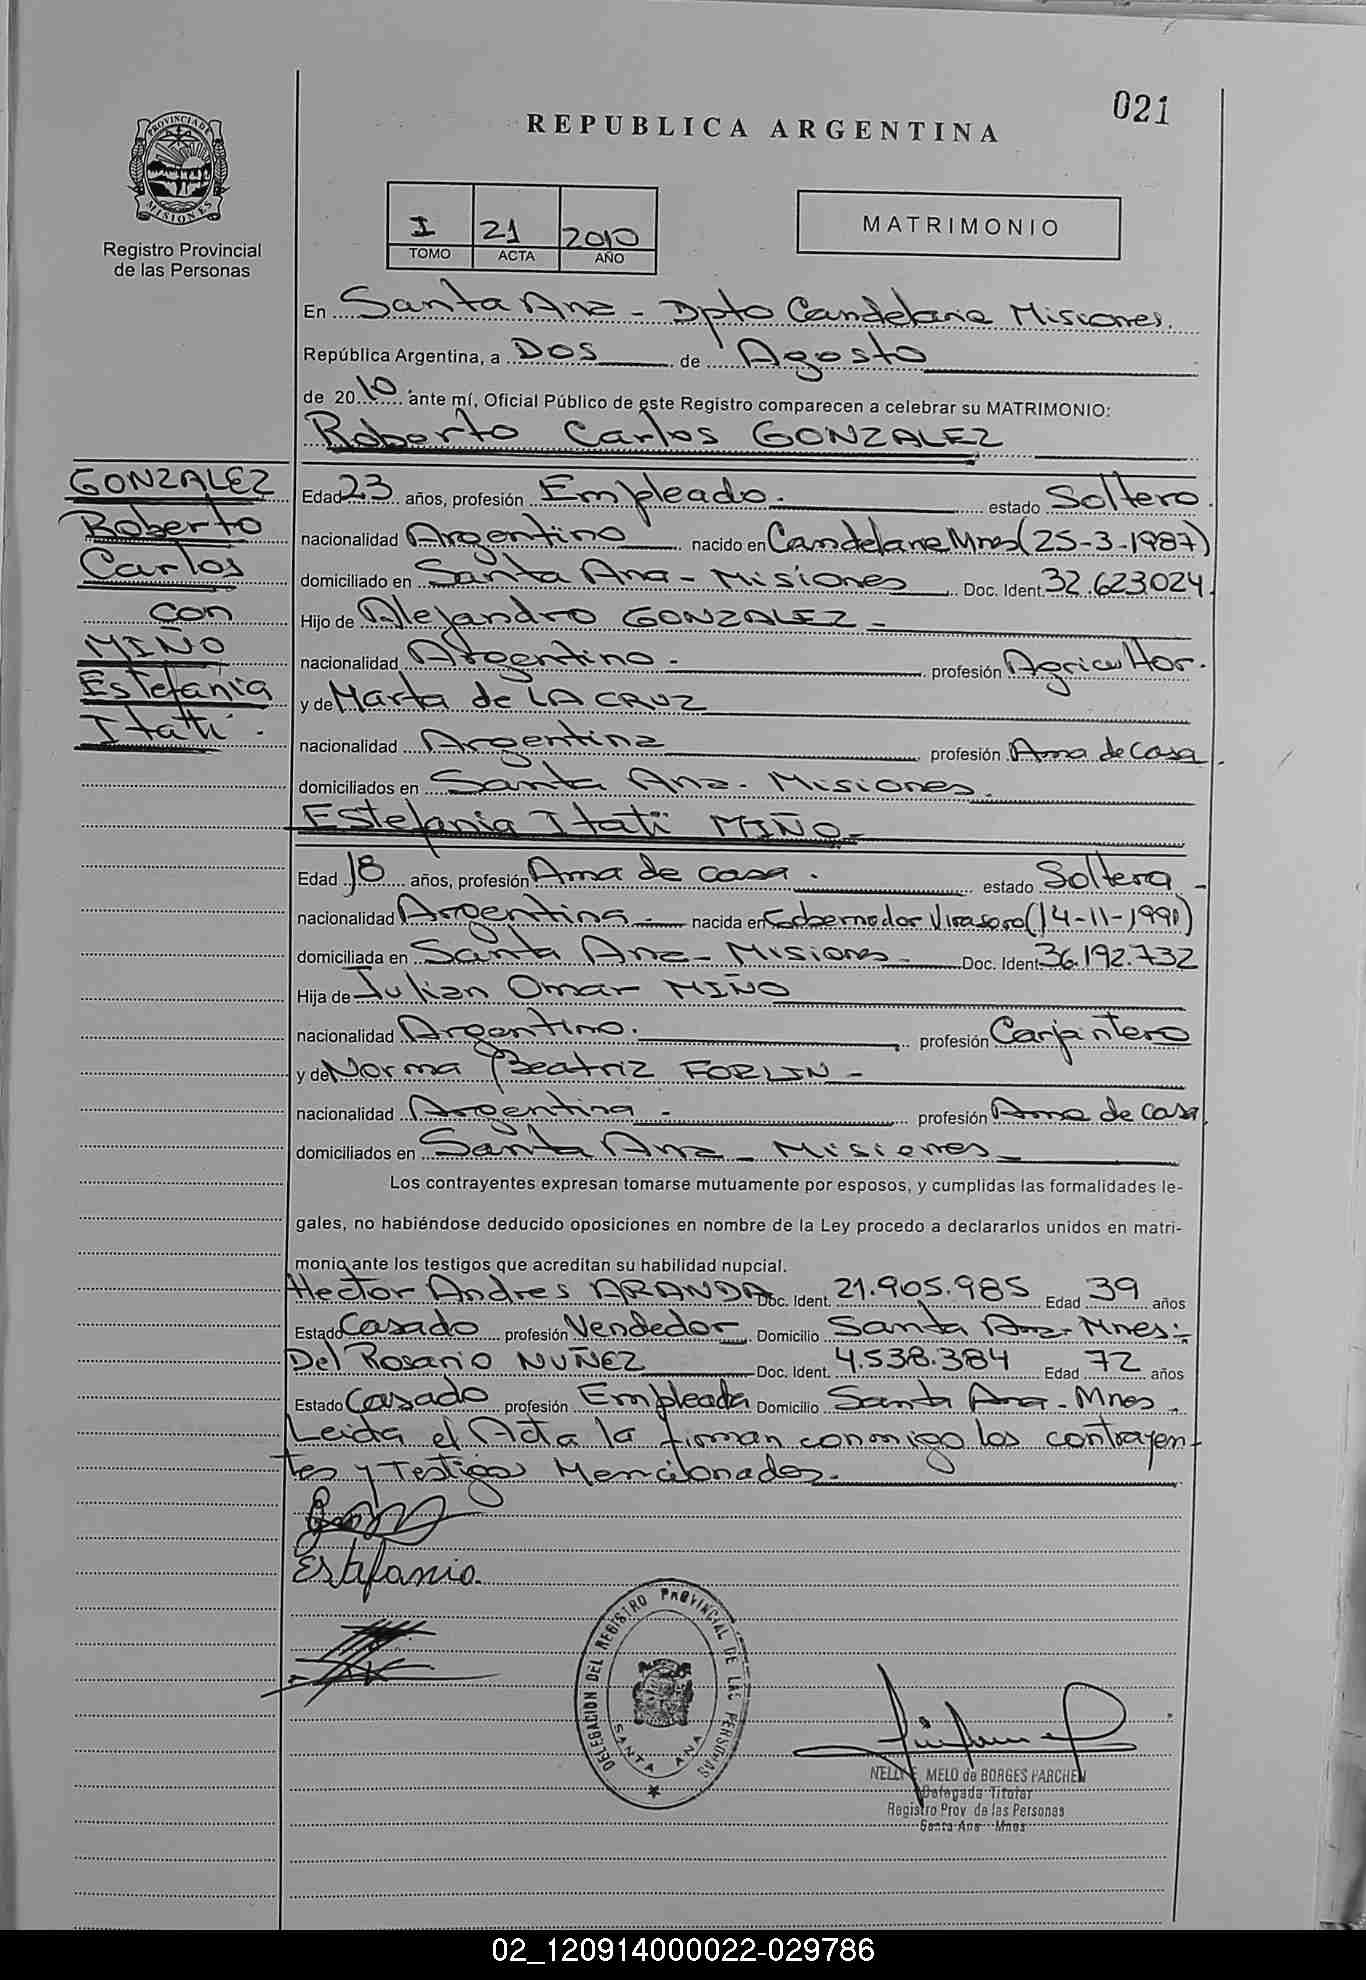 021
REPUBLICA ARGENTINA
PROVINCIA DE MISIONES
Registro Provincial
de las Personas
I 21 2010
TOMO ACTA AÑO
MATRIMONIO
En Santa Ana - Dpto Candelaria Misiones.
República Argentina, a DOS de Agosto
de 2010 ante mí, Oficial Público de este Registro comparecen a celebrar su MATRIMONIO:
Roberto Carlos GONZALEZ
GONZALEZ
Roberto
Carlos
con
MIÑO
Estefania
Itatí.
Edad 23 años, profesión Empleado. estado Soltero.
nacionalidad Argentino nacido en Candelaria Mnes (25-3-1987)
domiciliado en Santa Ana - Misiones Doc. Ident. 32.623.024
Hijo de Alejandro GONZALEZ -
nacionalidad Argentino - profesión Agricultor.
y de Marta de LA CRUZ
nacionalidad Argentina profesión Ama de casa.
domiciliados en Santa Ana - Misiones.
Estefania Itatí MIÑO -
Edad 18 años, profesión Ama de casa. estado Soltera -
nacionalidad Argentina - nacida en Gobernador Virasoro (14-11-1991)
domiciliada en Santa Ana - Misiones - Doc. Ident. 36.192.732
Hija de Julian Omar MIÑO
nacionalidad Argentino. profesión Carpintero
y de Norma Beatriz FORLIN -
nacionalidad Argentina - profesión Ama de casa
domiciliados en Santa Ana - Misiones -
Los contrayentes expresan tomarse mutuamente por esposos, y cumplidas las formalidades le-
gales, no habiéndose deducido oposiciones en nombre de la Ley procedo a declararlos unidos en matri-
monio ante los testigos que acreditan su habilidad nupcial.
Hector Andres ARANDA Doc. Ident. 21.905.985 Edad 39 años
Estado Casado profesión Vendedor Domicilio Santa Ana - Mnes -
Del Rosario NUÑEZ Doc. Ident. 4.538.384 Edad 72 años
Estado Casado profesión Empleada Domicilio Santa Ana - Mnes.
Leida el Acta la firman conmigo los contrayen-
tes y Testigos Mencionados.
Estefania.
DELEGACION DEL REGISTRO PROVINCIAL DE LAS PERSONAS
SANTA ANA
NELLY E. MELO de BORGES PARCHEN
Delegada Titular
Registro Prov de las Personas
Santa Ana - Mnes
02_120914000022-029786